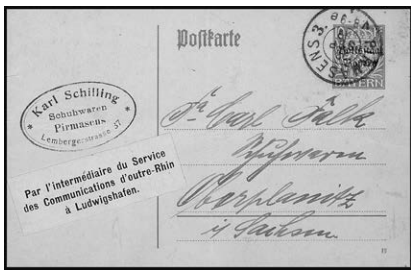 Postkarte
PIRMASENS 3.
BAYERN
* Karl Schilling *
Schuhwaren
Pirmasens
Lembergerstrasse 37
Par l'intermédiaire du Service
des Communications d'outre-Rhin
à Ludwigshafen.
Fa Carl Falk
Schuhwaren
Oberplanitz
i/ Sachsen